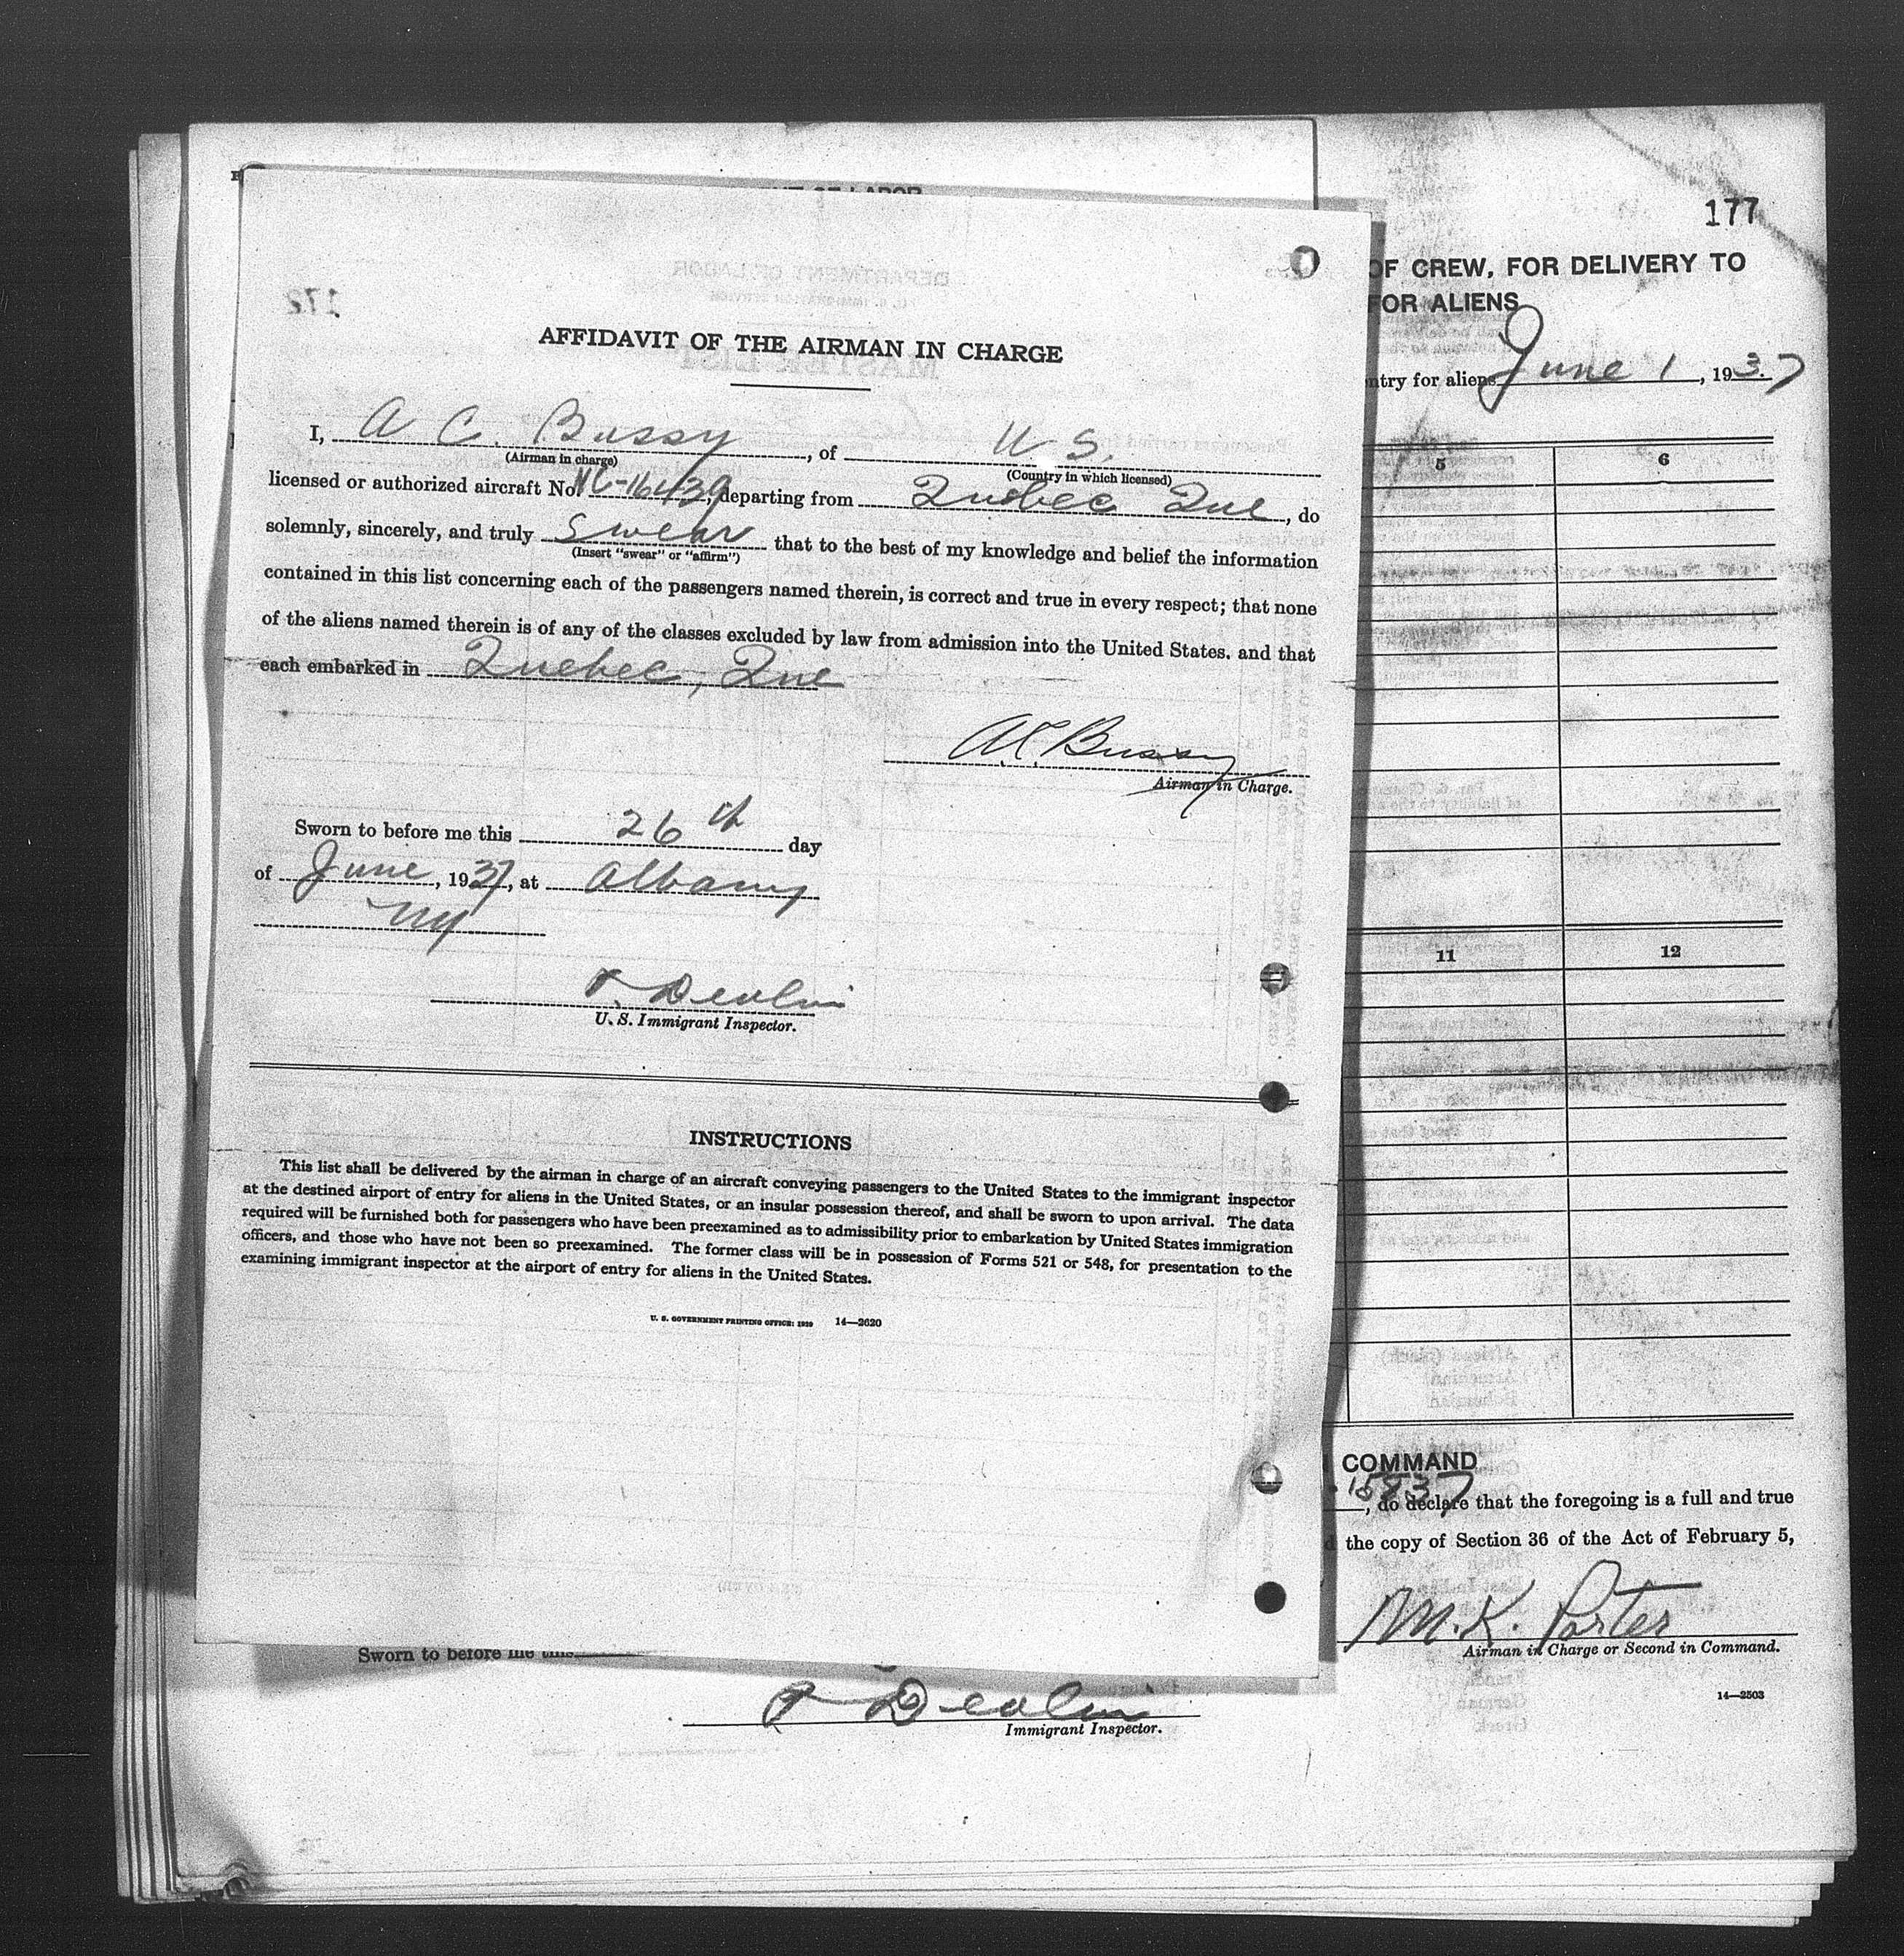 177
OF CREW, FOR DELIVERY TO
FOR ALIENS
ntry for aliens June 1, 1937
5 6
11 12
COMMAND
15837, do declare that the foregoing is a full and true
the copy of Section 36 of the Act of February 5,
M. K. Porter
Airman in Charge or Second in Command.
14—2503
AFFIDAVIT OF THE AIRMAN IN CHARGE
I, A C. Bussy, of U S.
(Airman in charge) (Country in which licensed)
licensed or authorized aircraft No. NC-16439, departing from Quebec Que, do
solemnly, sincerely, and truly swear that to the best of my knowledge and belief the information
(Insert "swear" or "affirm")
contained in this list concerning each of the passengers named therein, is correct and true in every respect; that none
of the aliens named therein is of any of the classes excluded by law from admission into the United States. and that
each embarked in Quebec, Que
A.C. Bussy
Airman in Charge.
Sworn to before me this 26th day
of June, 1937, at Albany
NY
T. Devlin
U. S. Immigrant Inspector.
INSTRUCTIONS
This list shall be delivered by the airman in charge of an aircraft conveying passengers to the United States to the immigrant inspector
at the destined airport of entry for aliens in the United States, or an insular possession thereof, and shall be sworn to upon arrival. The data
required will be furnished both for passengers who have been preexamined as to admissibility prior to embarkation by United States immigration
officers, and those who have not been so preexamined. The former class will be in possession of Forms 521 or 548, for presentation to the
examining immigrant inspector at the airport of entry for aliens in the United States.
U. S. GOVERNMENT PRINTING OFFICE: 1929 14—2620
Sworn to before me this
T Devlin
Immigrant Inspector.